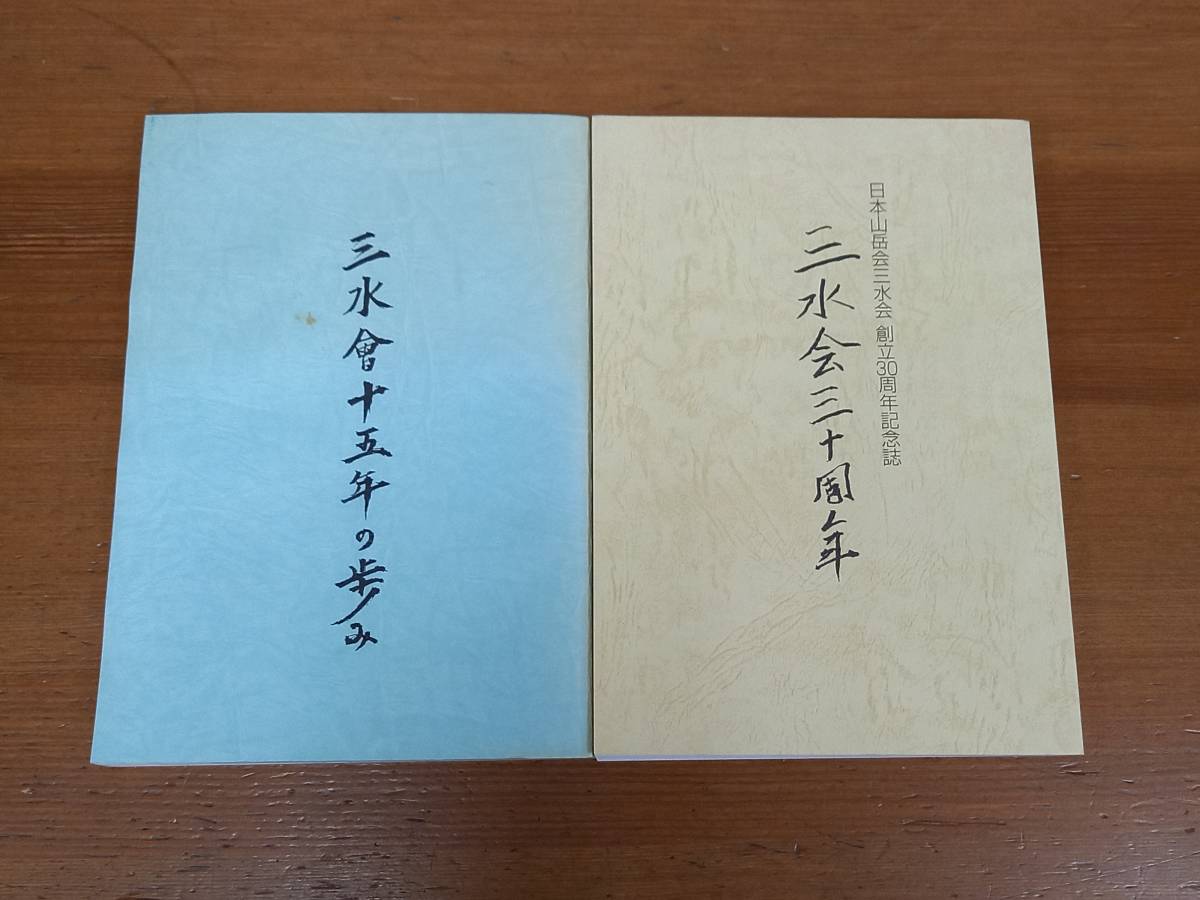 三水會十五年の歩み
日本山岳会三水会 創立30周年記念誌
三水会三十周年